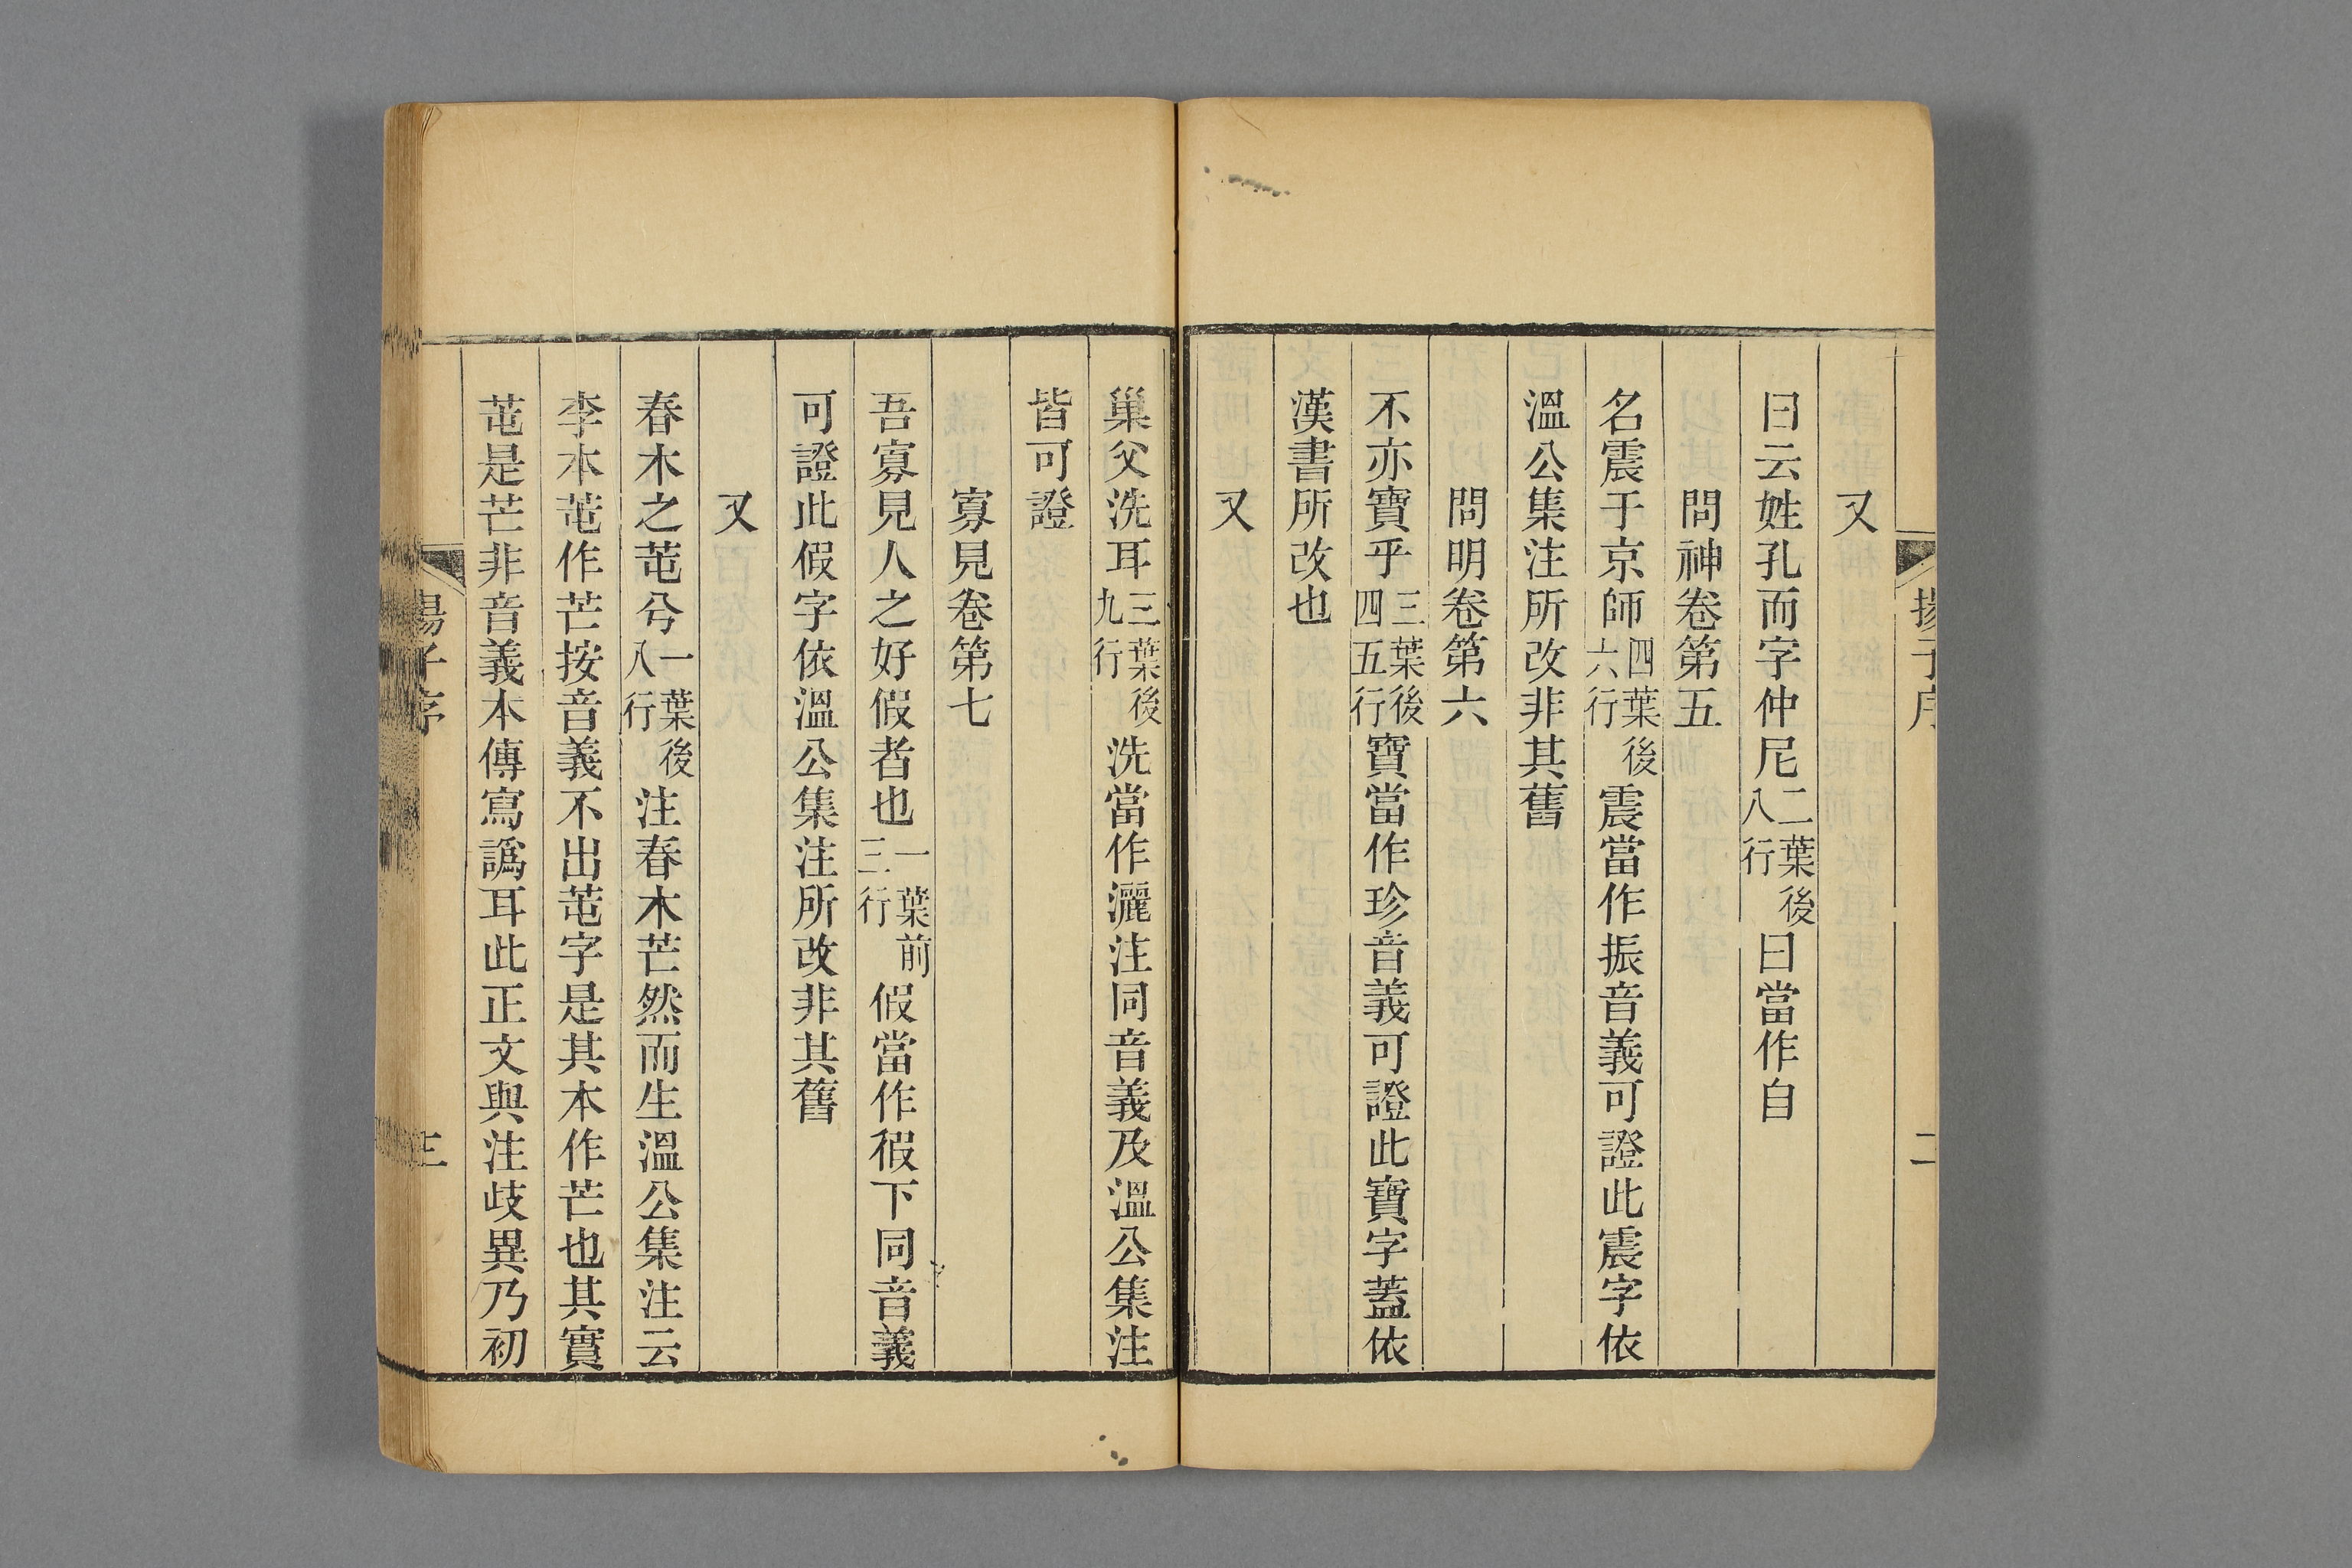 又
曰云姓孔而字仲尼二葉後八行曰當作自
問神卷第五
名震于京師四葉後六行震當作振音義可證此震字依
溫公集注所改非其舊
問明卷第六
不亦寶乎三葉後四五行寶當作珍音義可證此寶字蓋依
漢書所改也
又
巢父洗耳三葉後九行洗當作灑注同音義及溫公集注
皆可證
寡見卷第七
吾寡見人之好假者也一葉前三行假當作徦下同音義
可證此假字依溫公集注所改非其舊
又
春木之芚兮一葉後八行注春木芒然而生溫公集注云
李本芚作芒按音義不出芚字是其本作芒也其實
芚是芒非音義本傳寫譌耳此正文與注歧異乃初